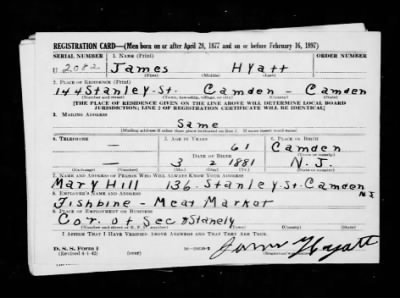 REGISTRATION CARD—(Men born on or after April 28, 1877 and on or before February 16, 1897)
SERIAL NUMBER 1. NAME (Print) ORDER NUMBER
U 2082 James Hyatt
(First) (Middle) (Last)
2. PLACE OF RESIDENCE (Print)
144 Stanley St. Camden - Camden
(Number and street) (Town, township, village, or city) (County) (State)
[THE PLACE OF RESIDENCE GIVEN ON THE LINE ABOVE WILL DETERMINE LOCAL BOARD
JURISDICTION; LINE 2 OF REGISTRATION CERTIFICATE WILL BE IDENTICAL]
3. MAILING ADDRESS
Same
[Mailing address if other than place indicated on line 2. If same insert word same]
4. TELEPHONE 5. AGE IN YEARS 6. PLACE OF BIRTH
— 61 Camden
DATE OF BIRTH (Town or county)
— 3 2 1881 N.J.
(Exchange) (Number) (Mo.) (Day) (Yr.) (State or country)
7. NAME AND ADDRESS OF PERSON WHO WILL ALWAYS KNOW YOUR ADDRESS
Mary Hill 136 Stanley St. Camden N.J.
8. EMPLOYER'S NAME AND ADDRESS
Fishbine - Meat Market
9. PLACE OF EMPLOYMENT OR BUSINESS
Cor. of Sec & Stanely
(Number and street or R. F. D. number) (Town) (County) (State)
I AFFIRM THAT I HAVE VERIFIED ABOVE ANSWERS AND THAT THEY ARE TRUE.
D. S. S. Form 1
(Revised 4-1-42) (over) James Hyatt